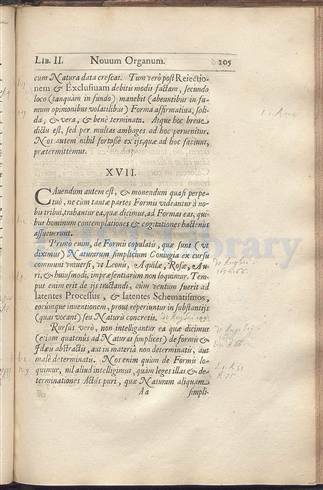 LIB. II. Novum Organum. 205
cum Natura data crescat. Tum verò post Rejectio-
nem & Exclusivam debitis modis factam, secundo
loco (tanquam in fundo) manebit (abeuntibus in fu-
mum opinionibus volatilibus) Forma affirmativa, soli-
da, & vera, & benè terminata. Atque hoc breve
dictu est, sed per multas ambages ad hoc pervenitur.
Nos autem nihil fortasse ex iis, quæ ad hoc faciunt,
prætermittemus.
XVII.
CAvendum autem est, & monendum quasi perpe-
tuò, ne cum tantæ partes Formis videantur à no-
bis tribui, trahantur ea, quæ dicimus, ad Formas eas, qui-
bus hominum contemplationes & cogitationes hactenus
assueverunt.
Primò enim, de Formis copulatis, quæ sunt (ut
diximus) Naturarum simplicium Conjugia ex cursu
communi universi, ut Leonis, Aquilæ, Rosæ, Au-
ri, & hujusmodi, impræsentiarum non loquimur. Tem-
pus enim erit de iis tractandi, cum ventum fuerit ad
latentes Processus, & latentes Schematismos,
eorumque inventionem, prout reperiuntur in substantiis
(quas vocant) seu Naturis concretis.
Rursus verò, non intelligantur ea quæ dicimus
(etiam quatenus ad Naturas simplices) de formis &
Ideis abstractis, aut in materia non determinatis, aut
malè determinatis. Nos enim quùm de Formis lo-
quimur, nil aliud intelligimus, quàm leges illas & de-
terminationes Actûs puri, quæ Naturam aliquam
Aa simpli-
Library